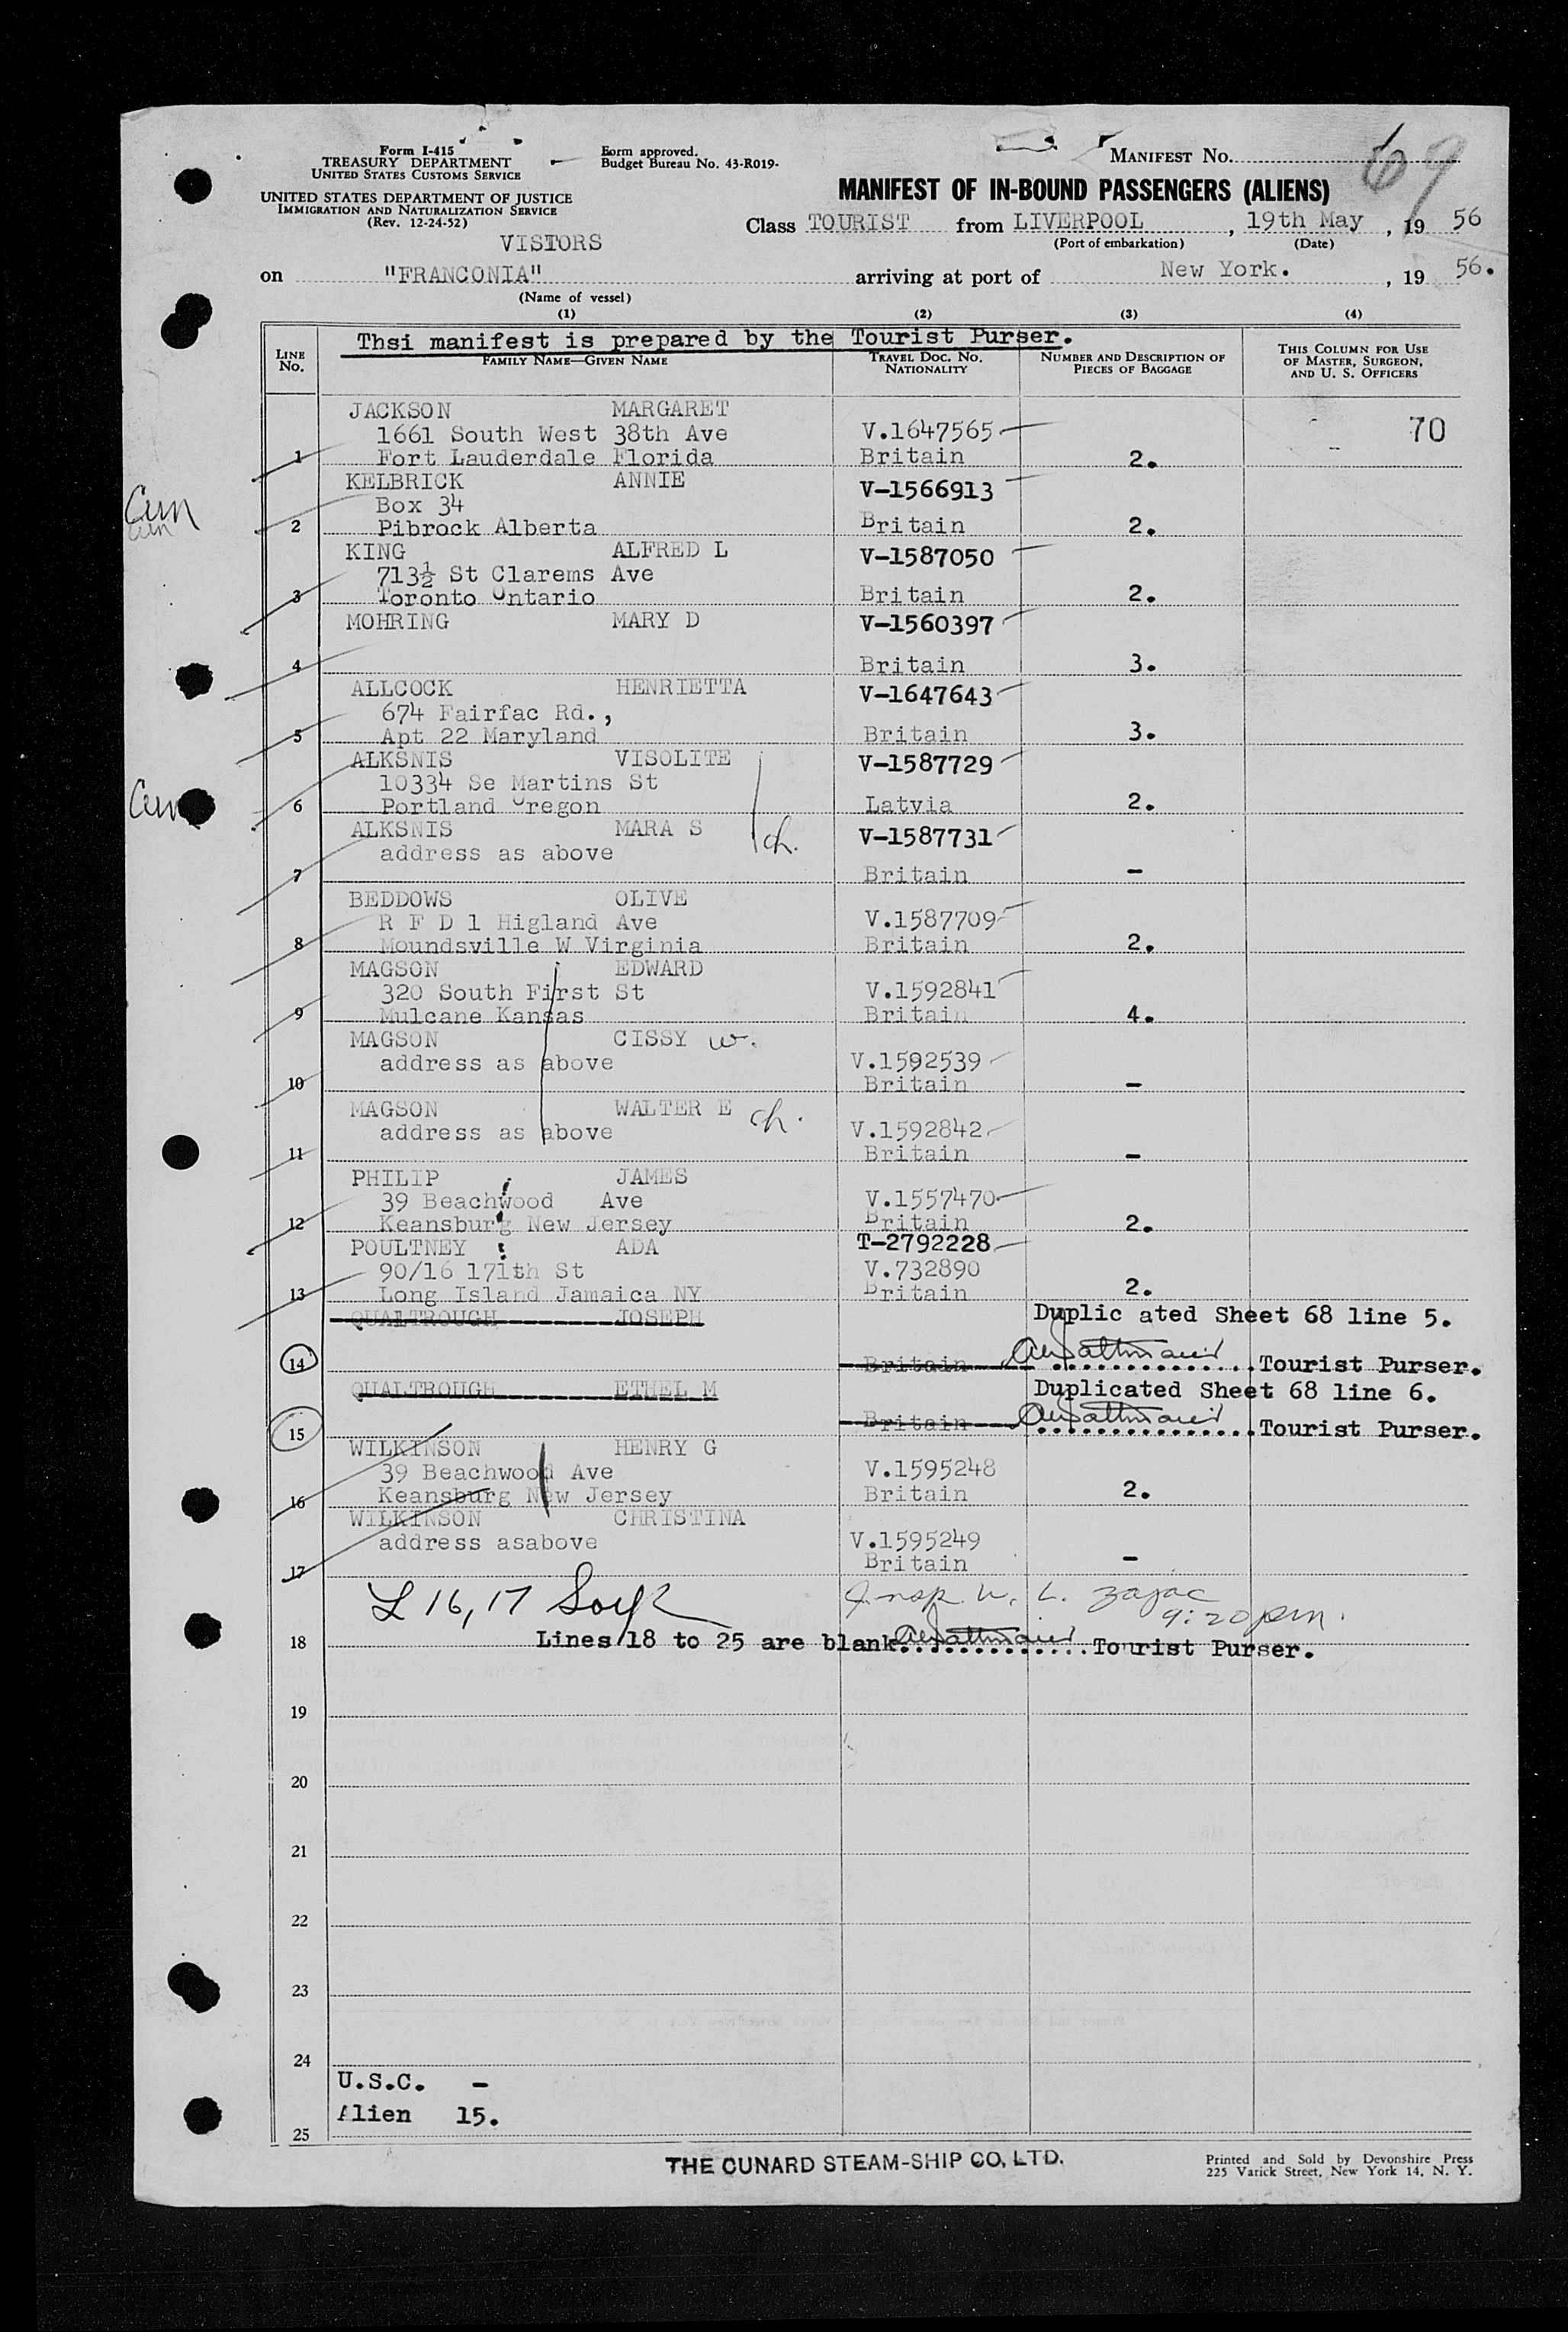 Form I-415
TREASURY DEPARTMENT
UNITED STATES CUSTOMS SERVICE
UNITED STATES DEPARTMENT OF JUSTICE
IMMIGRATION AND NATURALIZATION SERVICE
(Rev. 12-24-52)
Form approved.
Budget Bureau No. 43-R019.
MANIFEST No. 69
MANIFEST OF IN-BOUND PASSENGERS (ALIENS)
Class TOURIST from LIVERPOOL, 19th May, 19 56
(Port of embarkation) (Date)
VISTORS
on "FRANCONIA" arriving at port of New York. , 19 56.
(Name of vessel)
(1) (2) (3) (4)
Thsi manifest is prepared by the Tourist Purser.
LINE No. FAMILY NAME—GIVEN NAME TRAVEL DOC. NO. NATIONALITY NUMBER AND DESCRIPTION OF PIECES OF BAGGAGE THIS COLUMN FOR USE OF MASTER, SURGEON, AND U. S. OFFICERS
JACKSON MARGARET 70
1661 South West 38th Ave V.1647565
1 Fort Lauderdale Florida Britain 2.
KELBRICK ANNIE V-1566913
Box 34
2 Pibrock Alberta Britain 2.
KING ALFRED L V-1587050
713½ St Clarems Ave
3 Toronto Ontario Britain 2.
MOHRING MARY D V-1560397
4 Britain 3.
ALLCOCK HENRIETTA V-1647643
674 Fairfac Rd.,
5 Apt 22 Maryland Britain 3.
ALKSNIS VISOLITE V-1587729
10334 Se Martins St
6 Portland Oregon Latvia 2.
ALKSNIS MARA S ch. V-1587731
address as above
7 Britain –
BEDDOWS OLIVE
R F D 1 Higland Ave V.1587709
8 Moundsville W Virginia Britain 2.
MAGSON EDWARD
320 South First St V.1592841
9 Mulcane Kansas Britain 4.
MAGSON CISSY w.
address as above V.1592539
10 Britain –
MAGSON WALTER E ch.
address as above V.1592842
11 Britain –
PHILIP JAMES
39 Beachwood Ave V.1557470
12 Keansburg New Jersey Britain 2.
POULTNEY ADA T-2792228
90/16 171th St V.732890
13 Long Island Jamaica NY Britain 2.
QUALTROUGH JOSEPH Duplic ated Sheet 68 line 5.
14 Britain Tourist Purser.
QUALTROUGH ETHEL M Duplicated Sheet 68 line 6.
15 Britain Tourist Purser.
WILKINSON HENRY G
39 Beachwood Ave V.1595248
16 Keansburg New Jersey Britain 2.
WILKINSON CHRISTINA
address asabove V.1595249
17 Britain –
L 16, 17 Insp. W. L. Zajac
9:20 pm.
18 Lines 18 to 25 are blank Tourist Purser.
19
20
21
22
23
24
U.S.C. –
Alien 15.
25
THE CUNARD STEAM-SHIP CO, LTD.
Printed and Sold by Devonshire Press
225 Varick Street, New York 14, N. Y.